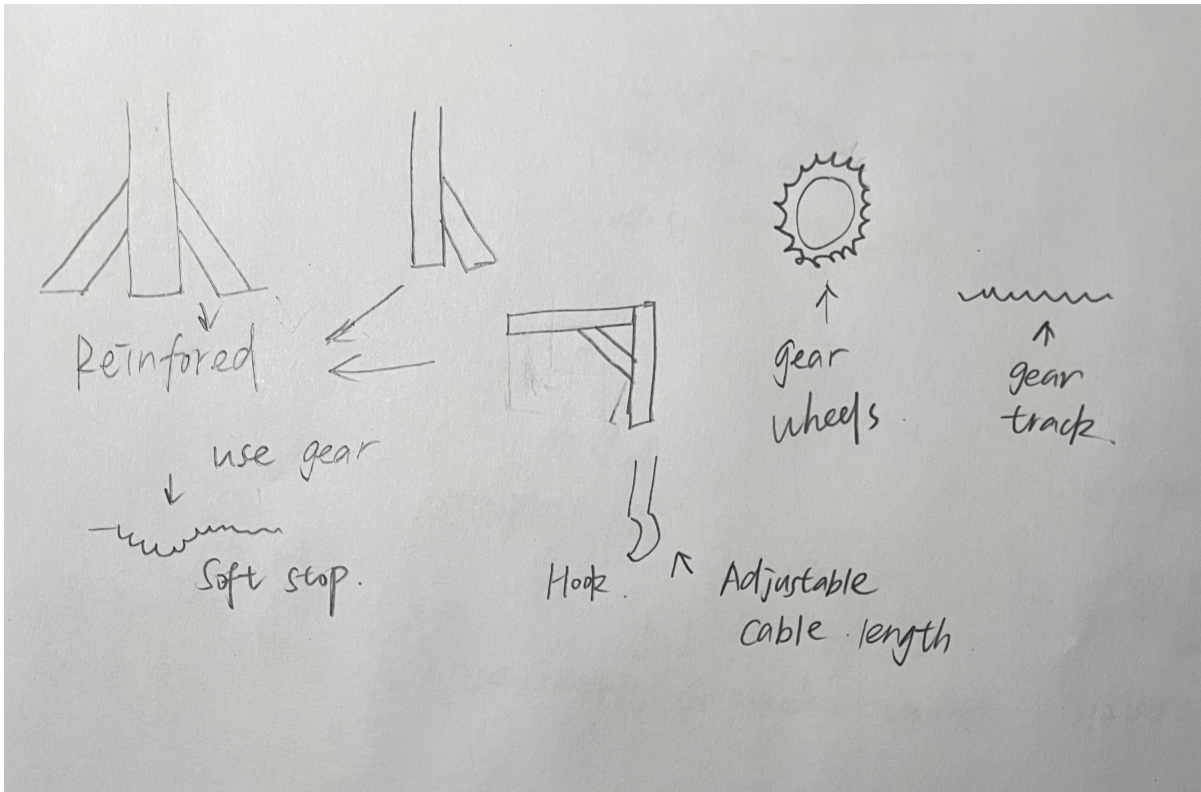 Reinfored
use gear
Soft stop.
Hook.
Adjustable
cable length
gear
wheels.
gear
track.